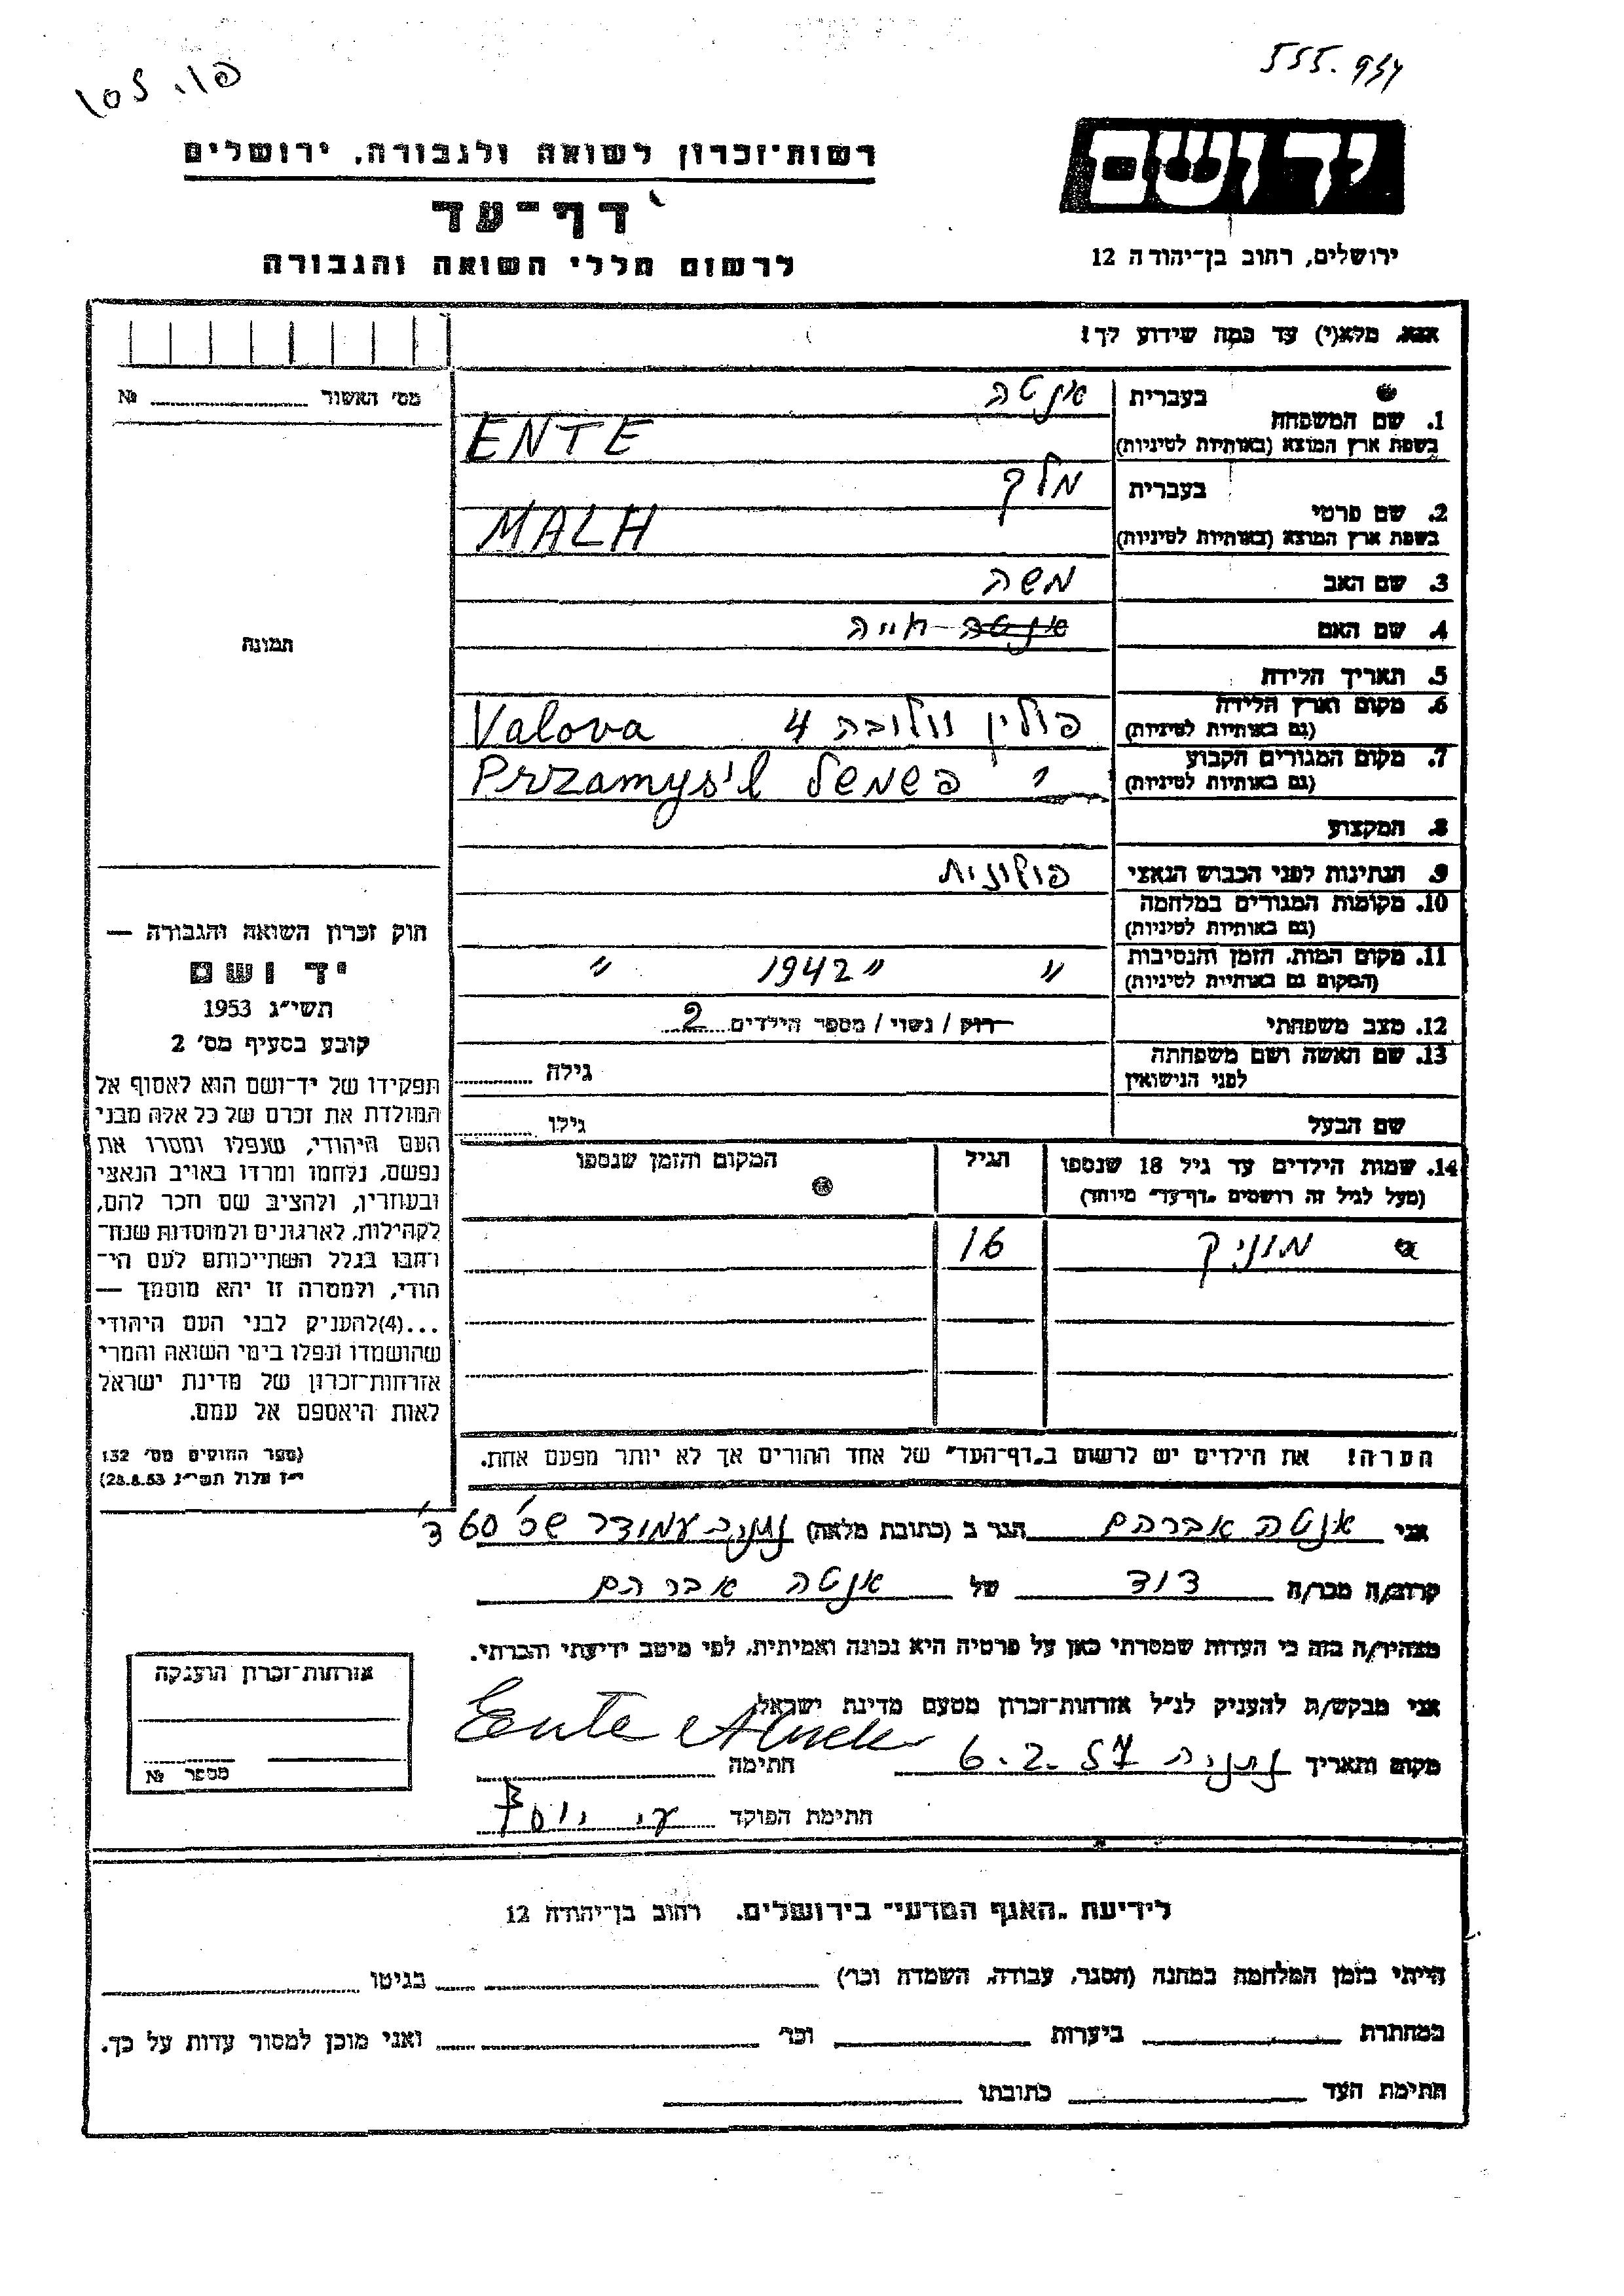 555.934
יד ושם
רשות־זכרון לשואה ולגבורה, ירושלים
דף־עד
ירושלים, רחוב בן־יהודה 12
לרשום חללי השואה והגבורה
אנא, מלא(י) עד כמה שידוע לך!
מס׳ האשור № 
1. שם המשפחה
בעברית אנטה
בשפת ארץ המוצא (באותיות לטיניות) ENTE
2. שם פרטי
בעברית מלך
בשפת ארץ המוצא (באותיות לטיניות) MALH
3. שם האב משה
4. שם האם אנטה - חייה
תמונה
5. תאריך הלידה
6. מקום וארץ הלידה (גם באותיות לטיניות) פולין וולובה 4 Valova
7. מקום המגורים הקבוע (גם באותיות לטיניות) " פשמשל Przamysl
8. המקצוע
9. הנתינות לפני הכבוש הנאצי פולונית
10. מקומות המגורים במלחמה (גם באותיות לטיניות)
11. מקום המות, הזמן והנסיבות (המקום גם באותיות לטיניות) " 1942 " "
12. מצב משפחתי רוק / נשוי / מספר הילדים 2
13. שם האשה ושם משפחתה לפני הנישואין גילה
שם הבעל גילו
14. שמות הילדים עד גיל 18 שנספו (מעל לגיל זה רושמים „דף־עד״ מיוחד) הגיל המקום והזמן שנספו
מוניק 16
הערה! את הילדים יש לרשום ב„דף־העד״ של אחד ההורים אך לא יותר מפעם אחת.
חוק זכרון השואה והגבורה —
יד ושם
תשי״ג 1953
קובע בסעיף מס׳ 2
תפקידו של יד־ושם הוא לאסוף אל
המולדת את זכרם של כל אלה מבני
העם היהודי, שנפלו ומסרו את
נפשם, נלחמו ומרדו באויב הנאצי
ובעוזריו, ולהציב שם וזכר להם,
לקהילות, לארגונים ולמוסדות שנח־
רבו בגלל השתייכותם לעם הי־
הודי, ולמטרה זו יהא מוסמך —
...(4)להעניק לבני העם היהודי
שהושמדו ונפלו בימי השואה והמרי
אזרחות־זכרון של מדינת ישראל
לאות היאספם אל עמם.
(ספר החוקים מס׳ 132
י״ז אלול תשי״ג 28.8.53)
אני אנטה אברהם הגר ב (כתובת מלאה) עמודר שכ׳ 60 ד׳
קרוב/ה מכר/ה דוד של אנטה אברהם
מצהיר/ה בזה כי העדות שמסרתי כאן על פרטיה היא נכונה ואמיתית, לפי מיטב ידיעתי והכרתי.
אני מבקש/ת להעניק לנ״ל אזרחות־זכרון מטעם מדינת ישראל
מקום ותאריך נתניה 6.2.57 חתימה Ente
חתימת הפוקד
אזרחות־זכרון הוענקה
מספר №
לידיעת „האגף המדעי״ בירושלים, רחוב בן־יהודה 12
הייתי בזמן המלחמה במחנה (הסגר, עבודה, השמדה וכו׳) בגיטו
במחתרת ביערות וכו׳ ואני מוכן למסור עדות על כך.
חתימת העד כתובתו